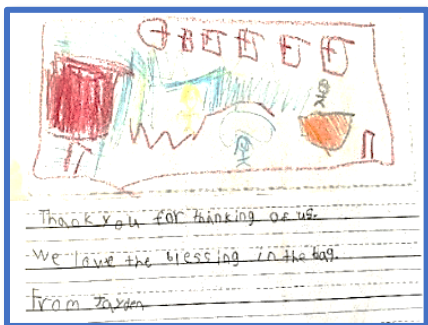 Thank you for thinking of us.
We love the blessing in the bag.
From Jayden